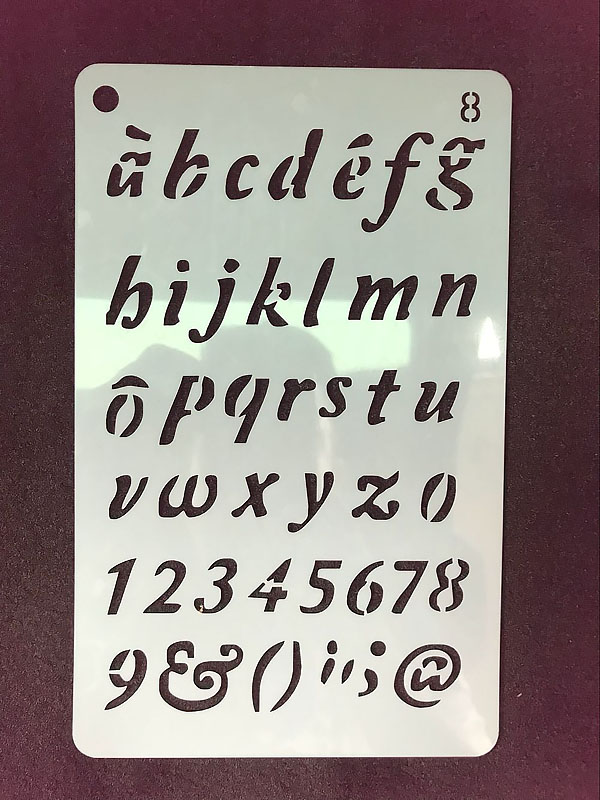 8
àbcdéfğ
hijklmn
ôpqrstu
vwxyz0
12345678
9&()i";@